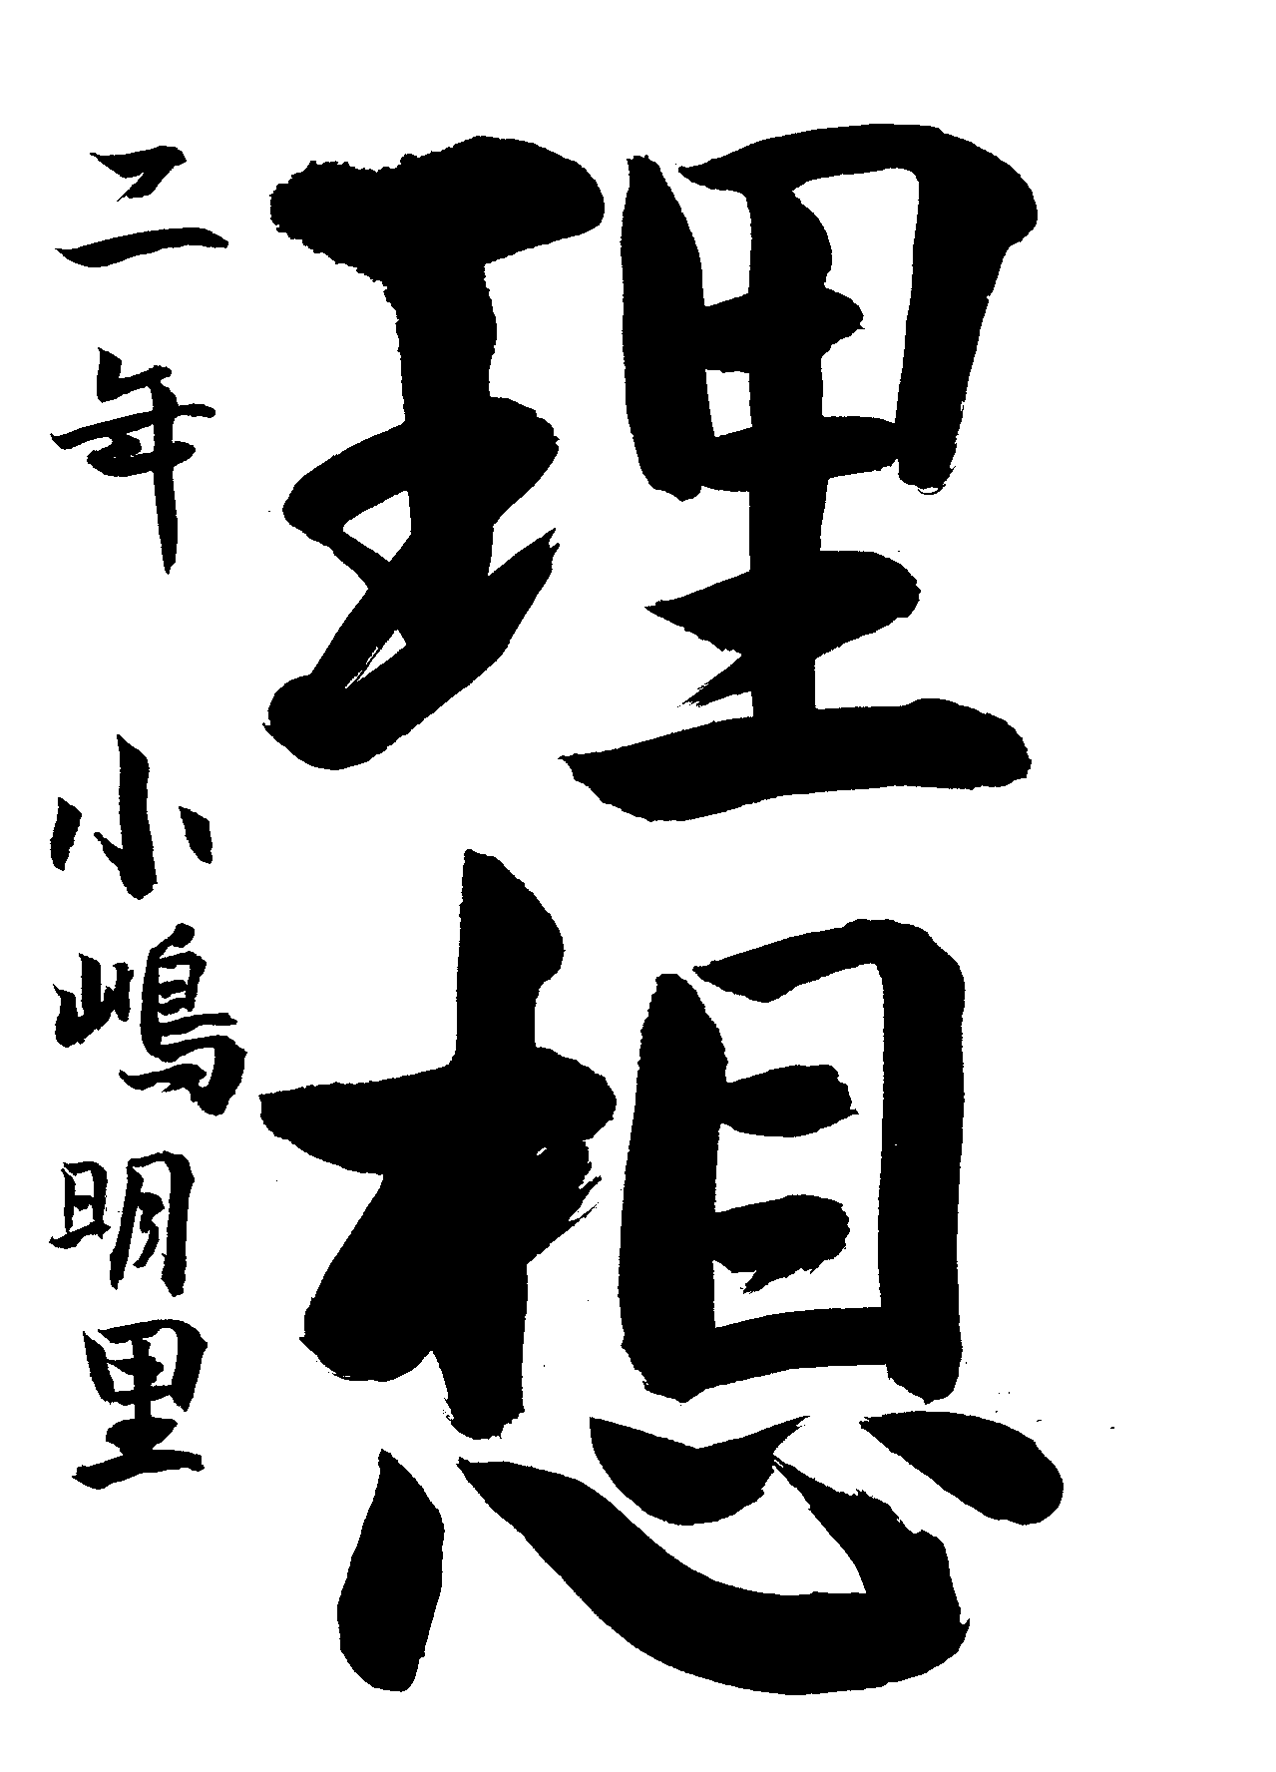 理想
二年 小嶋明里